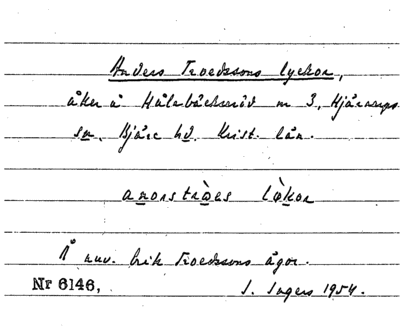 Anders Troedssons lyckor,
åker å Hålarödsmöd nr 3, Hjärnarps
sn, Bjäre hd. Krist. län.
anorstràes lỳkor
Å nuv. Erik Troedssons ägor.
Nr 6146, I. Ingers 1954.